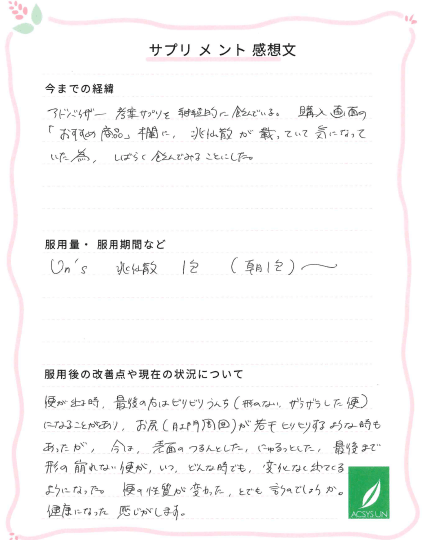 サプリメント感想文
今までの経緯
アドバイザー 考案サプリを 継続的に飲んでいる。 購入画面の
「おすすめ商品」欄に、 兆仙散が載っていて気になって
いた為、 しばらく飲んでみることにした。
服用量・服用期間など
Un's 兆仙散 1包 (朝1包)
服用後の改善点や現在の状況について
便が出る時、最後の方はビリビリうんち(形のない、ザラザラした便)
になることがあり、お尻(肛門周囲)が若干ヒリヒリするような時も
あったが、今は、表面のつるんとした、にゅるっとした、最後まで
形の崩れない便が、いつ、どんな時でも、変化なく出てくる
ようになった。便の性質が変わった、とでも言うのでしょうか。
健康になった感じがします。
ACSYSLIN